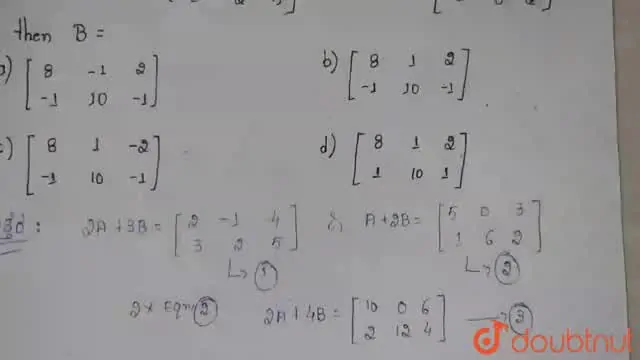 then B =
a) [ 8 -1 2
-1 10 -1 ]
b) [ 8 1 2
-1 10 -1 ]
c) [ 8 1 -2
-1 10 -1 ]
d) [ 8 1 2
1 10 1 ]
: 2A + 3B = [ 2 -1 4
3 2 5 ]
↳ ①
& A + 2B = [ 5 0 3
1 6 2 ]
↳ ②
2 × Eqn ② 2A + 4B = [ 10 0 6
2 12 4 ] → ③
doubtnut